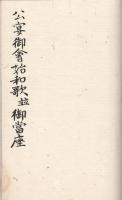 公宴御會始和歌並御當座